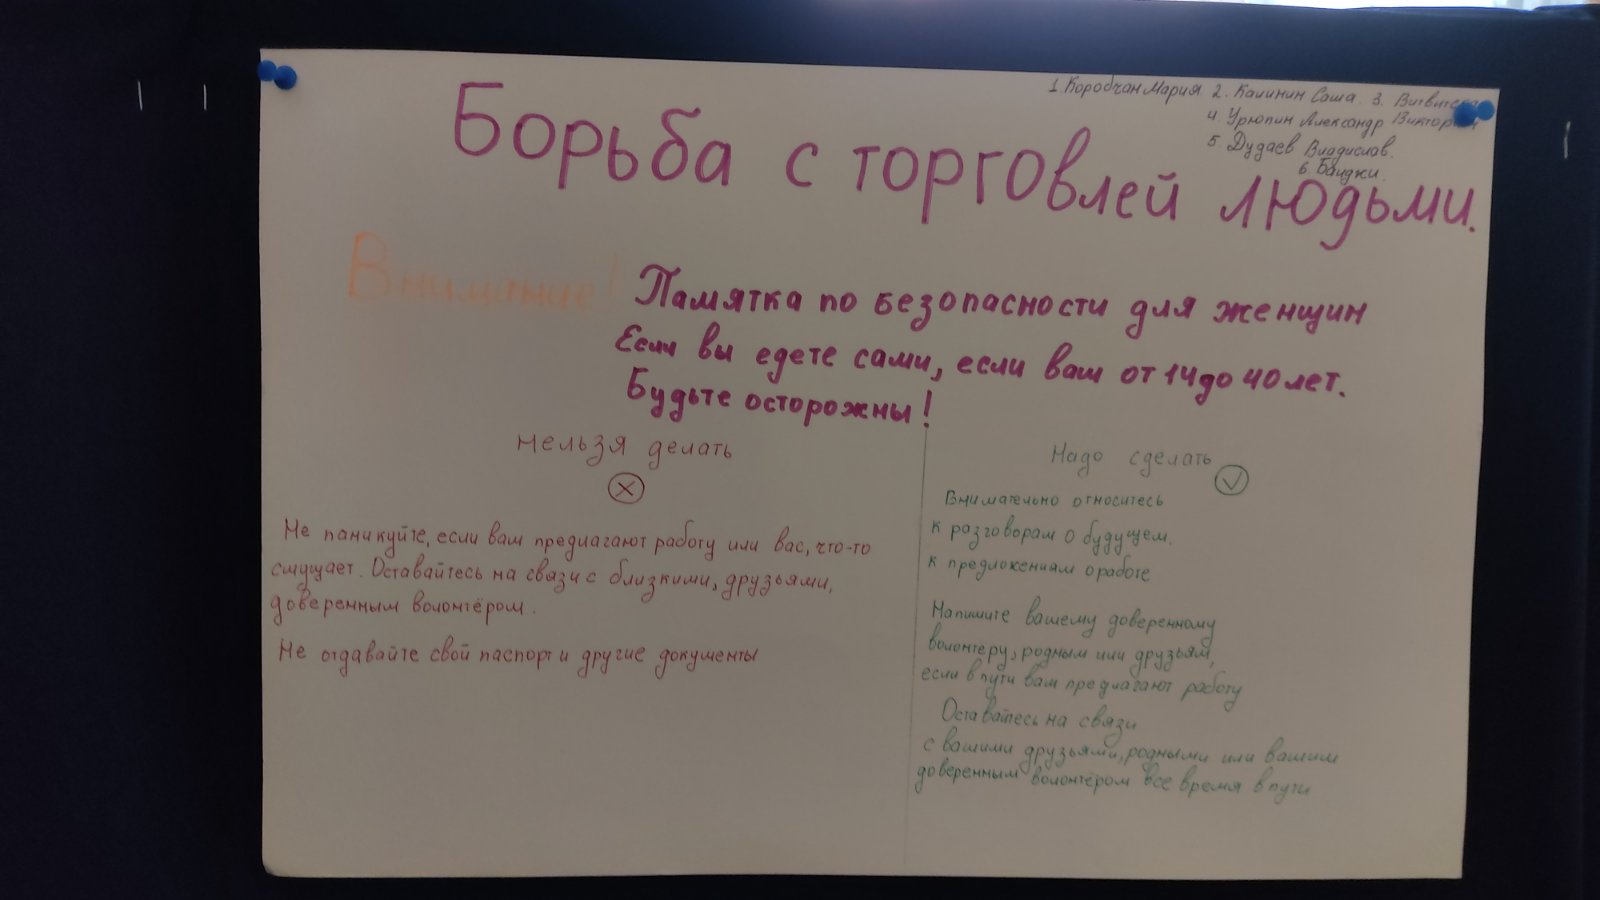 1. Коробчан Мария 2. Калинин Саша. 3.
4. Урюпин Александр
5. Дудаев Владислав.
6.
Борьба с торговлей людьми.
Внимание!
Памятка по безопасности для женщин
Если вы едете сами, если ваш от 14 до 40 лет.
Будьте осторожны!
Нельзя делать
Не паникуйте, если вам предлагают работу или вас, что-то
смущает. Оставайтесь на связи с близкими, друзьями,
доверенным волонтёром.
Не отдавайте свой паспорт и другие документы
Надо сделать
Внимательно относитесь
к разговорам о будущем.
к предложениям о работе
Напишите вашему доверенному
волонтеру, родным или друзьям,
если в пути вам предлагают работу
Оставайтесь на связи
с вашими друзьями, родными или вашим
доверенным волонтёром все время в пути